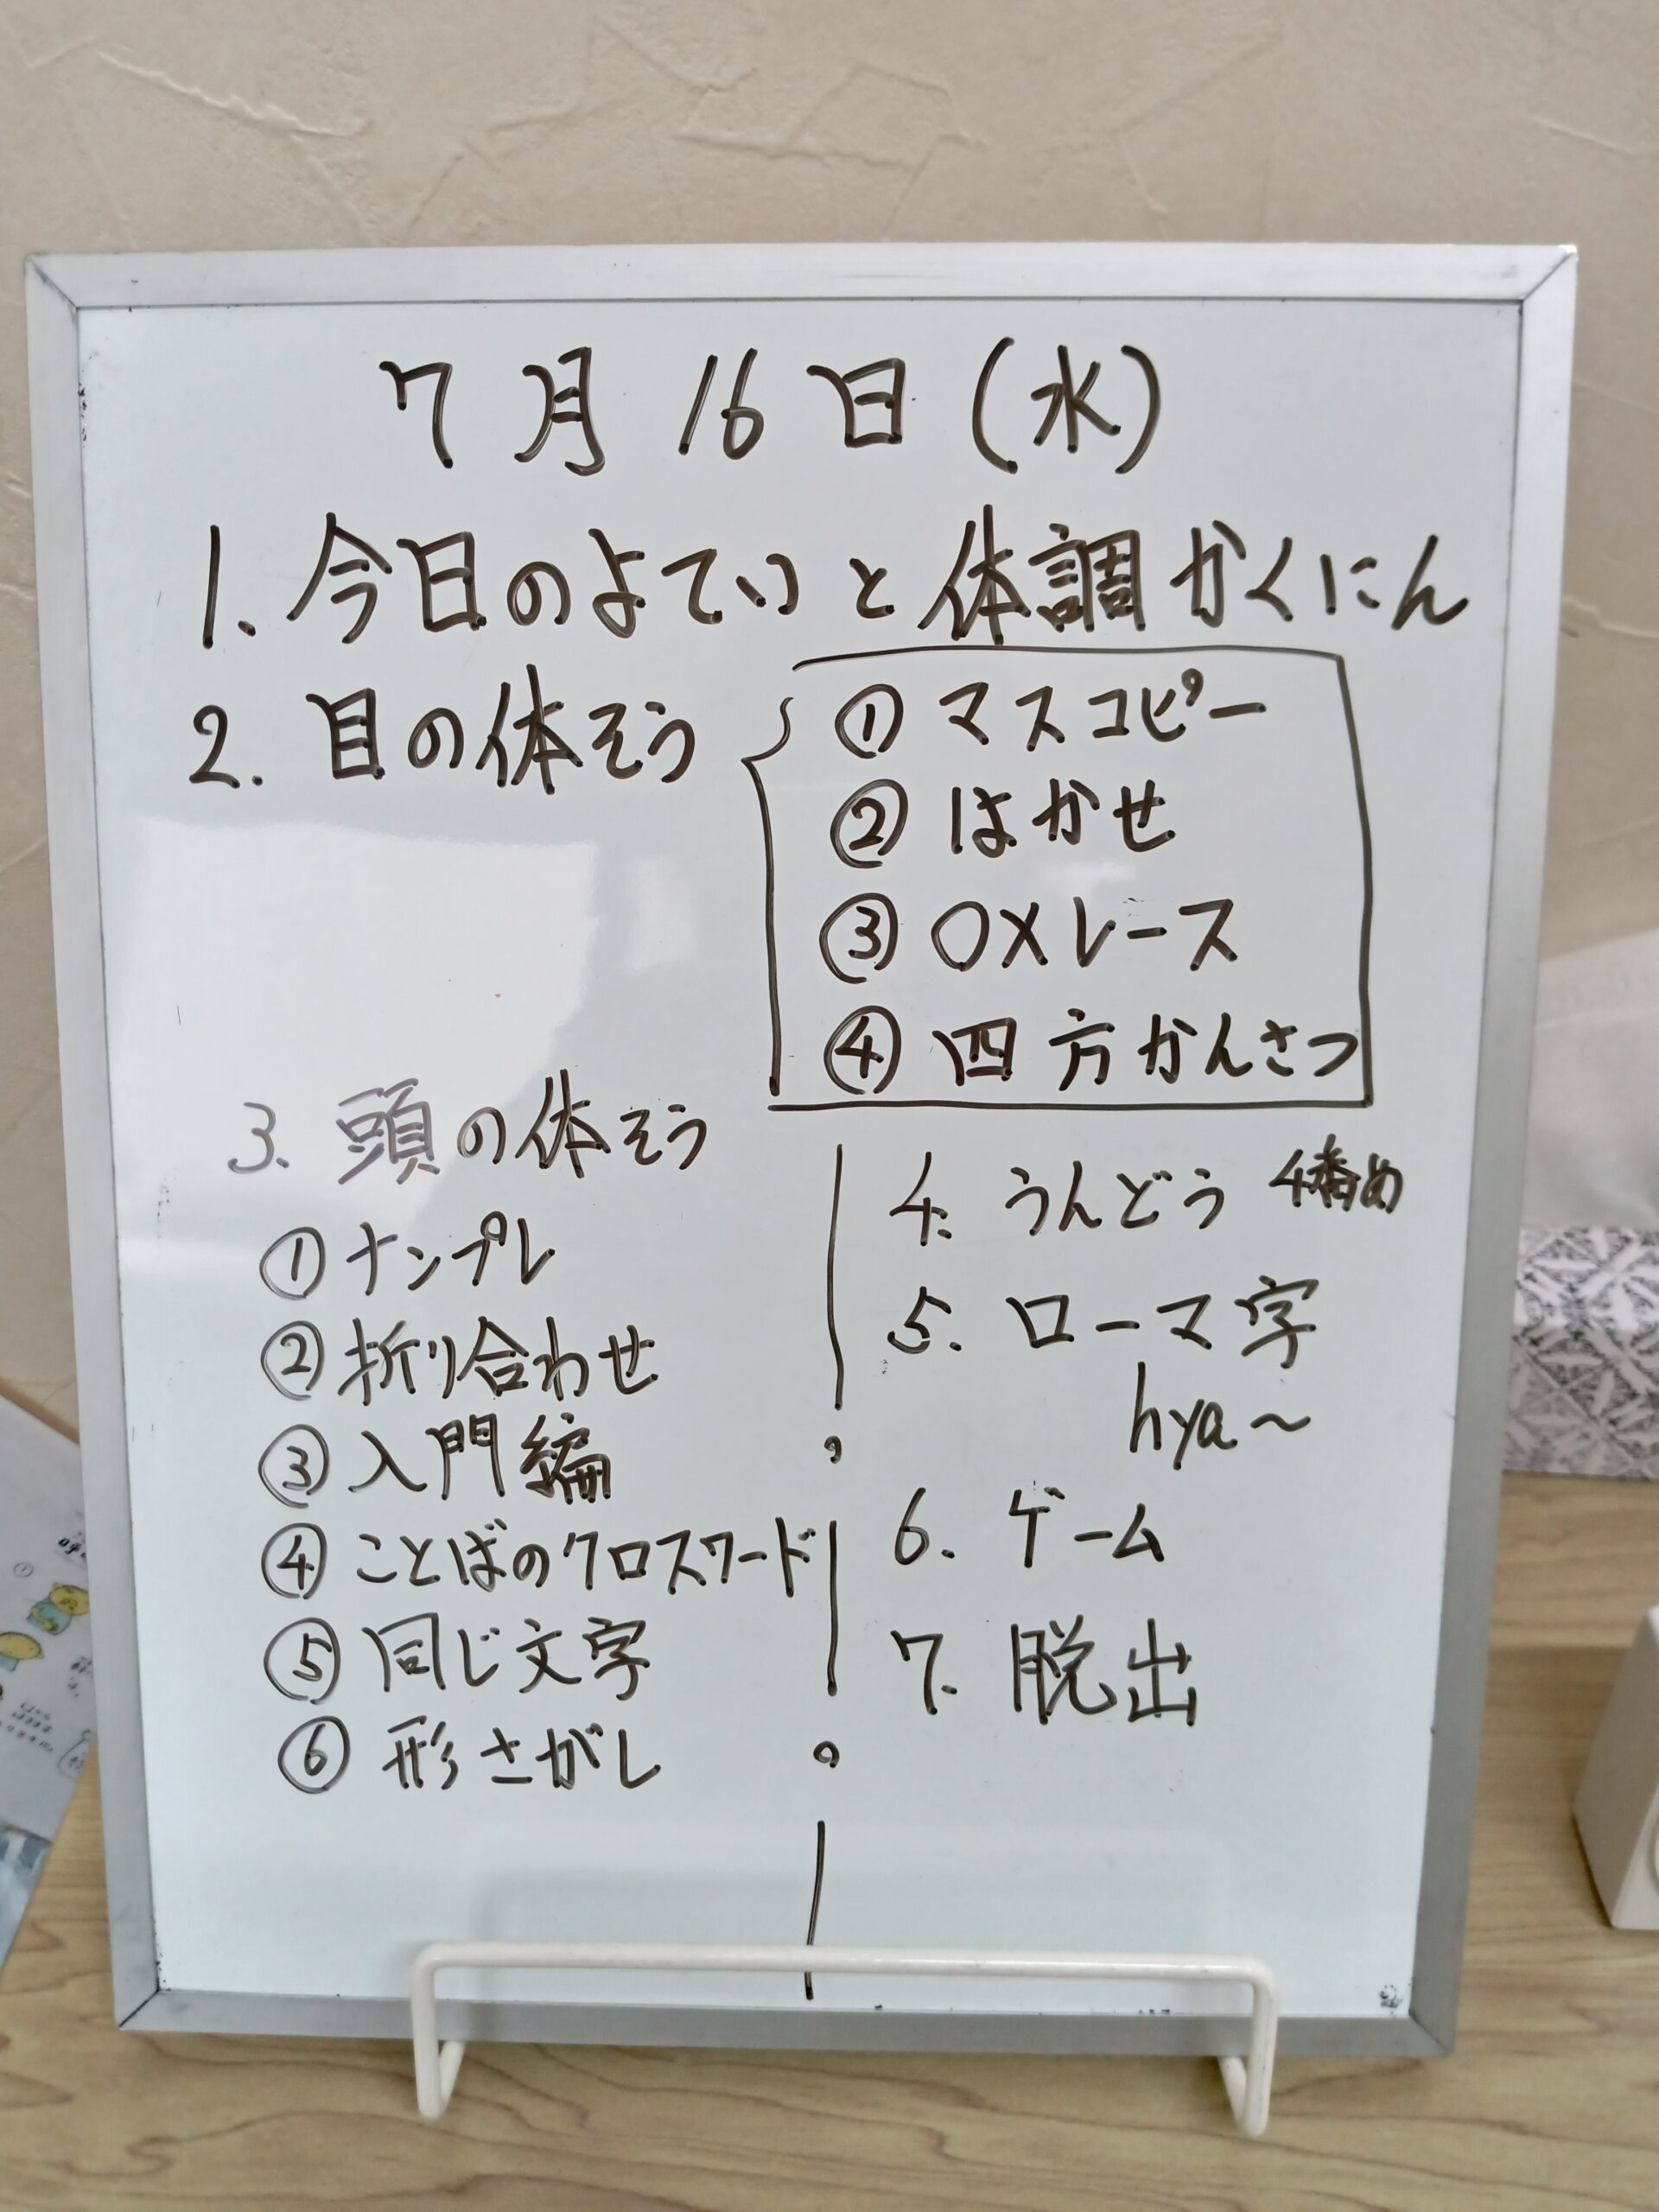 7月16日(水)
1. 今日のよていと体調かくにん
2. 目の体そう
① マスコピー
② はかせ
③ ○×レース
④ 四方かんさつ
3. 頭の体そう
① ナンプレ
② 折り合わせ
③ 入門編
④ ことばのクロスワード
⑤ 同じ文字
⑥ 形さがし
4. うんどう 4番め
5. ローマ字
hya〜
6. ゲーム
7. 脱出